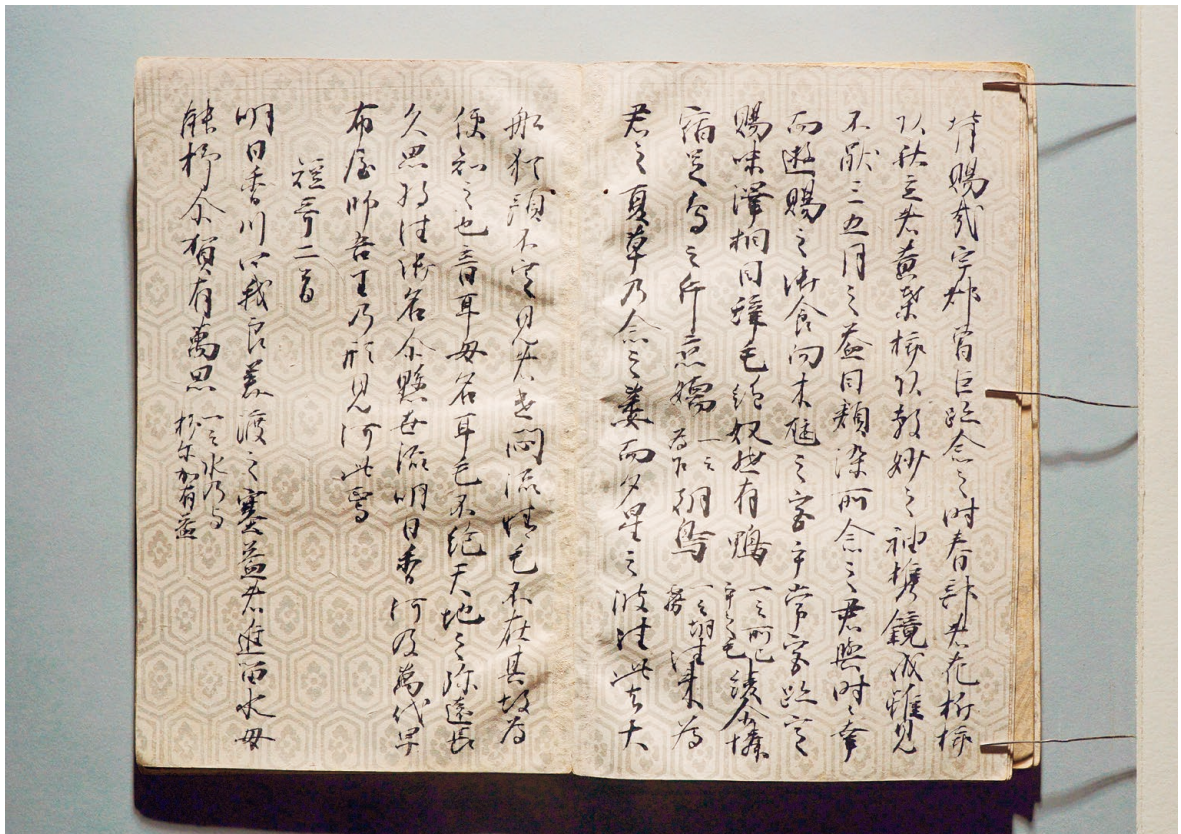 背賜哉宇都曽臣跡念之時春部者花折挿
頭秋立者黄葉挿頭敷妙之袖携鏡成雖見
不猒三五月之益目頬染所念之君與時々幸
而遊賜之御食向木㼋之宮乎常宮跡定
賜味澤相目辞毛絶奴然有鴨一云所己乎之毛綾尓憐
宿兄鳥之片戀嬬一云為乍朝鳥一云朝霧往来為
君之夏草乃念之萎而夕星之彼往此去大
船猶預不定見者遣悶流情毛不在其故為
便知之也音耳母名耳毛不絶天地之弥遠長
久思将往御名尓懸世流明日香河及萬代早
布屋師吾王乃形見何此焉
短哥二首
明日香川四我良美渡之塞益者進留水母
能杼尓賀有萬思一云水乃与杼尓加有益